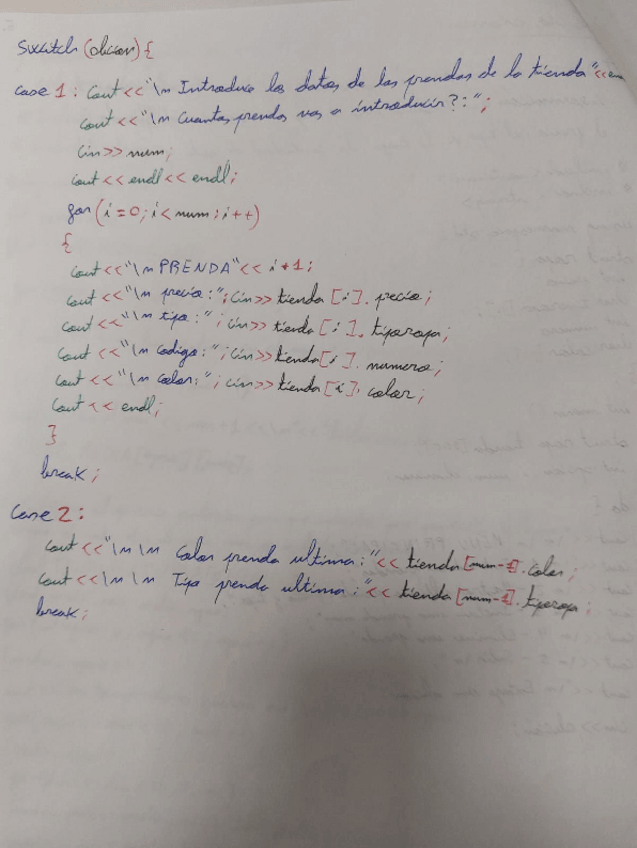 switch (opcion) {
case 1: cout<<"\n Introduce los datos de las prendas de la tienda"<<en
cout<<"\n Cuantas prendas vas a introducir?:";
cin>> num;
cout << endl << endl;
for (i=0; i<num; i++)
{
cout <<"\n PRENDA"<< i+1;
cout <<"\n precio:"; cin>> tienda [i]. precio;
cout <<"\n tipo:"; cin>> tienda [i]. tiporopa;
cout <<"\n codigo:"; cin>> tienda[i]. numero;
cout <<"\n color:"; cin>> tienda [i]. color;
cout << endl;
}
break;
Case 2:
cout <<"\n \n Color prenda ultima:"<< tienda [num-1].color;
cout <<\n \n Tipo prenda ultima:"<< tienda [num-1]. tiporopa;
break;